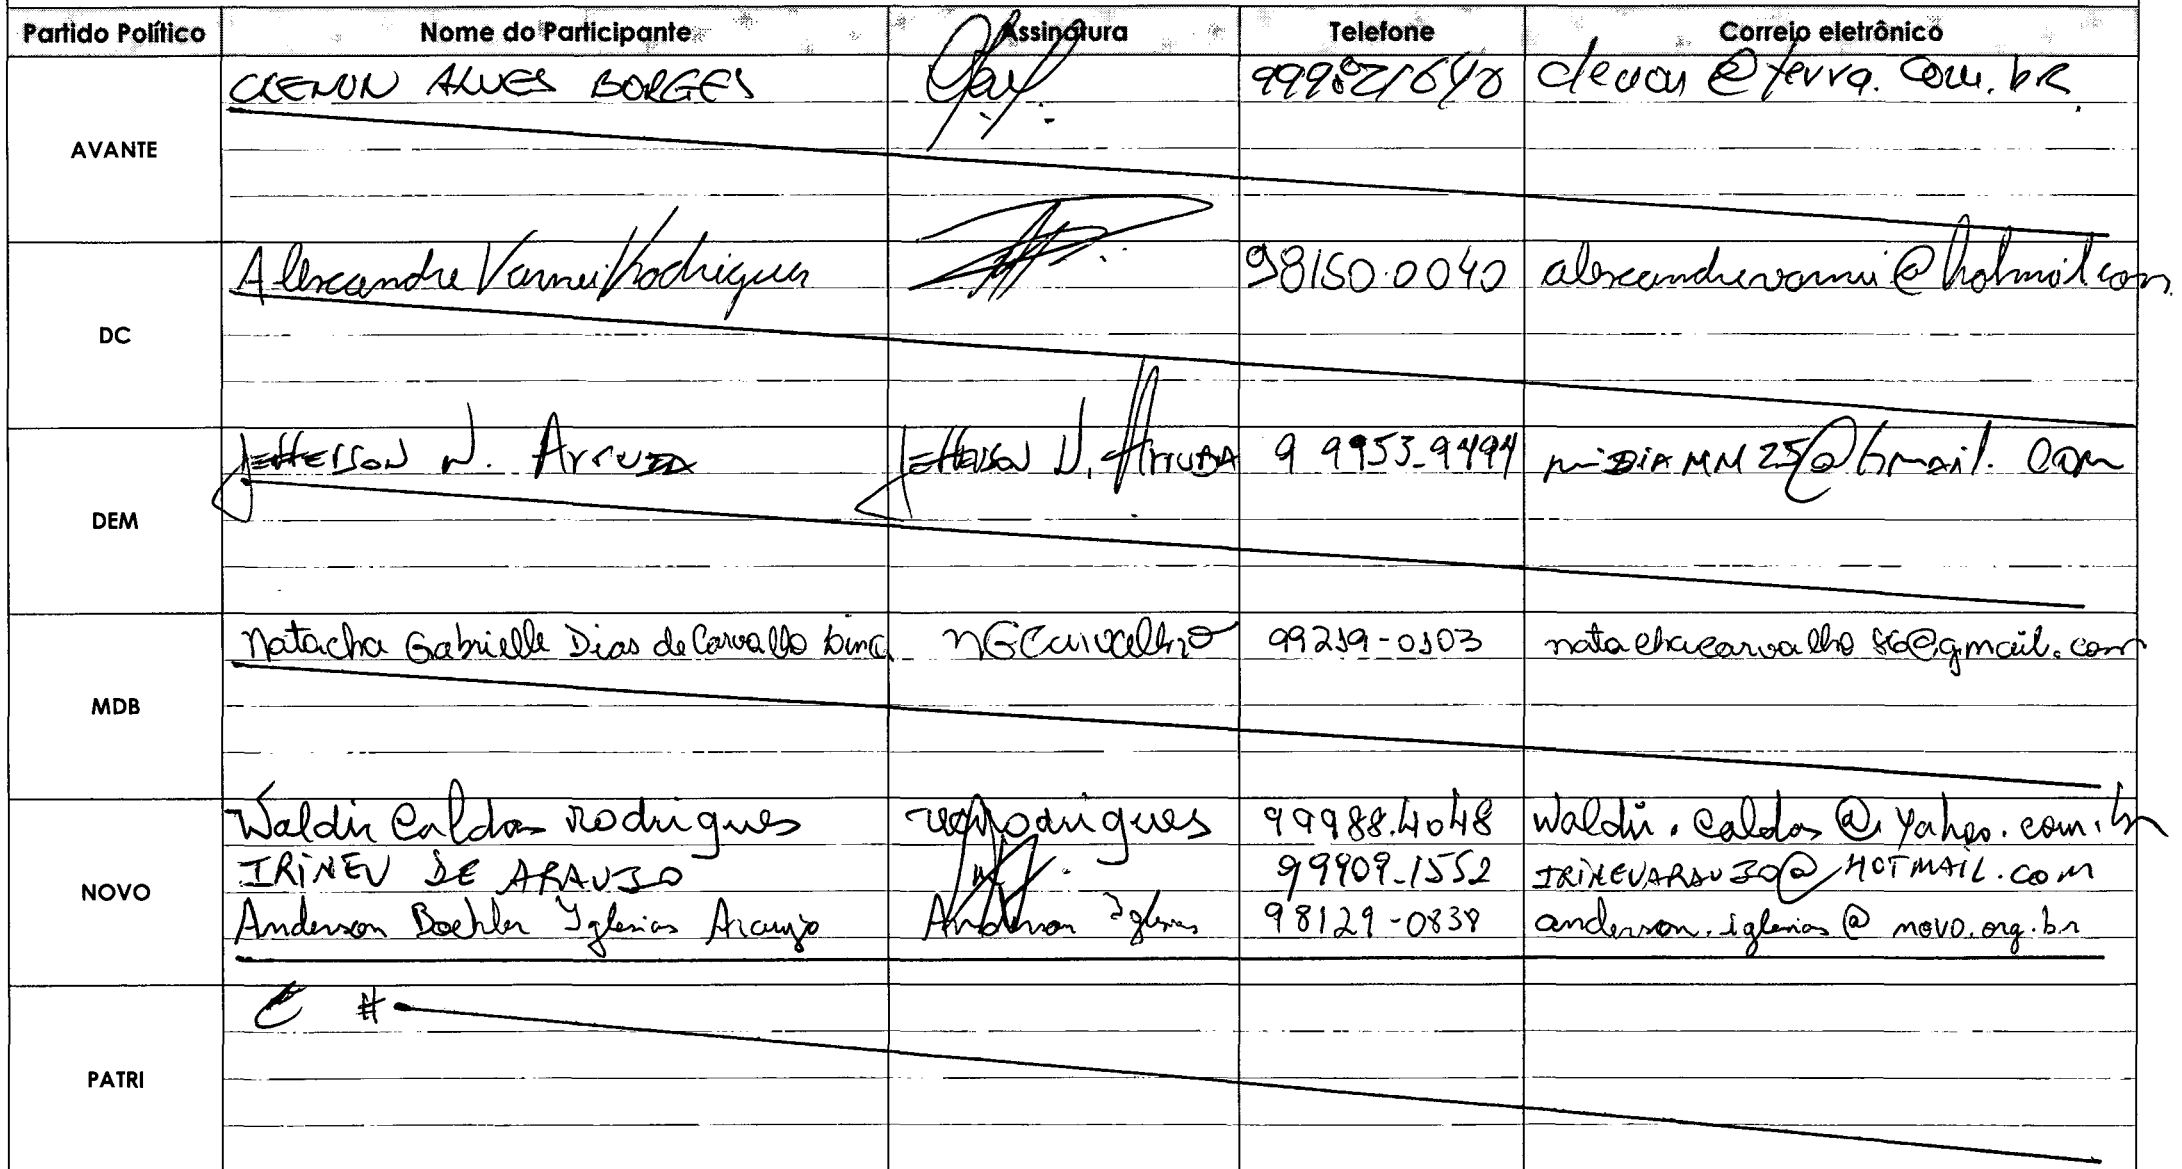 Partido Político Nome do Participante Assinatura Telefone Correio eletrônico
AVANTE CLENON ALVES BORGES 999821640 clenon@terra.com.br
DC Alexandre Vannei Rodrigues 98150.0040 alexandrevannei@hotmail.com
DEM Jefferson N. Arruda Jefferson N. Arruda 9 9953-9494 midiaMM25@Gmail.com
MDB Natacha Gabrielle Dias de Carvalho NGCarvalho 99219-0103 natachacarvalho86@gmail.com
NOVO Waldir Caldas Rodrigues Rodrigues 99988.4048 waldir.caldas@yahoo.com.br
IRINEU DE ARAUJO 99909-1552 IRINEUARAUJO@HOTMAIL.COM
Anderson Boehler Iglesias Araujo Anderson Iglesias 98129-0838 anderson.iglesias@novo.org.br
PATRI #